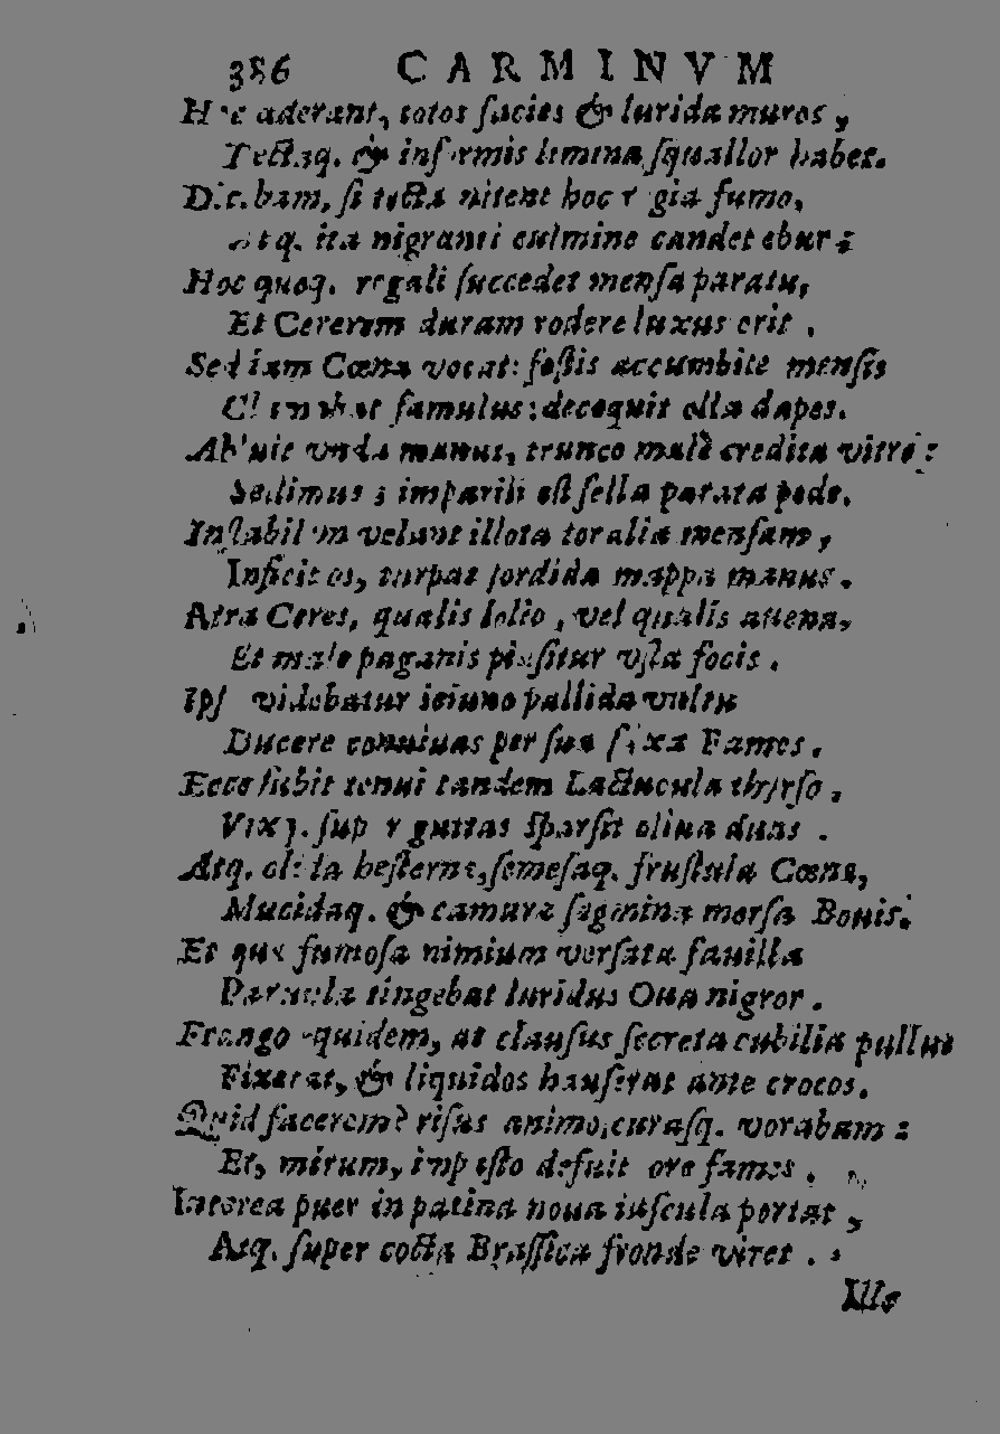 386 CARMINVM
aderant, totos facies & lurida muros,
Tectaq. & informis limina squallor habet.
Dicebam, si tecta nitent hoc regia fumo,
Atq. ita nigranti culmine candet ebur:
Hoc quoq. regali succedet mensa paratu,
Et Cererem duram rodere luxus erit.
Sed iam Cœna vocat: festis accumbite mensis
famulus: decoquit olla dapes.
Abluit vnda manus, trunco malè credita vitro:
Sedimus; imparili est sella parata pede.
Instabilem velant illota toralia mensam,
Inficit os, turpat sordida mappa manus.
Atra Ceres, qualis lolio, vel qualis auena,
Et male paganis pinsitur vsta focis.
Ipsa videbatur ieiuno pallida vultu
Ducere conuiuas per sua saxa Fames.
Ecce subit tenui tandem Lactucula thyrso,
Vixq. super guttas sparsit oliua duas.
Atq. olida hesternæ, semesaq. frustula Cœnæ,
Mucidaq. & camuræ sagmina morsa Bouis.
Et quæ fumosa nimium versata fauilla
Paruula tingebat luridus Oua nigror.
Frango equidem, at clausus secreta cubilia pullus
Fixerat, & liquidos hauserat ante crocos.
Quid facerem? risus animo, curasq. vorabam:
Et, mirum, impasto defuit ore fames.
Interea puer in patina noua iuscula portat,
Atq. super cocta Brassica fronde viret.
Ille